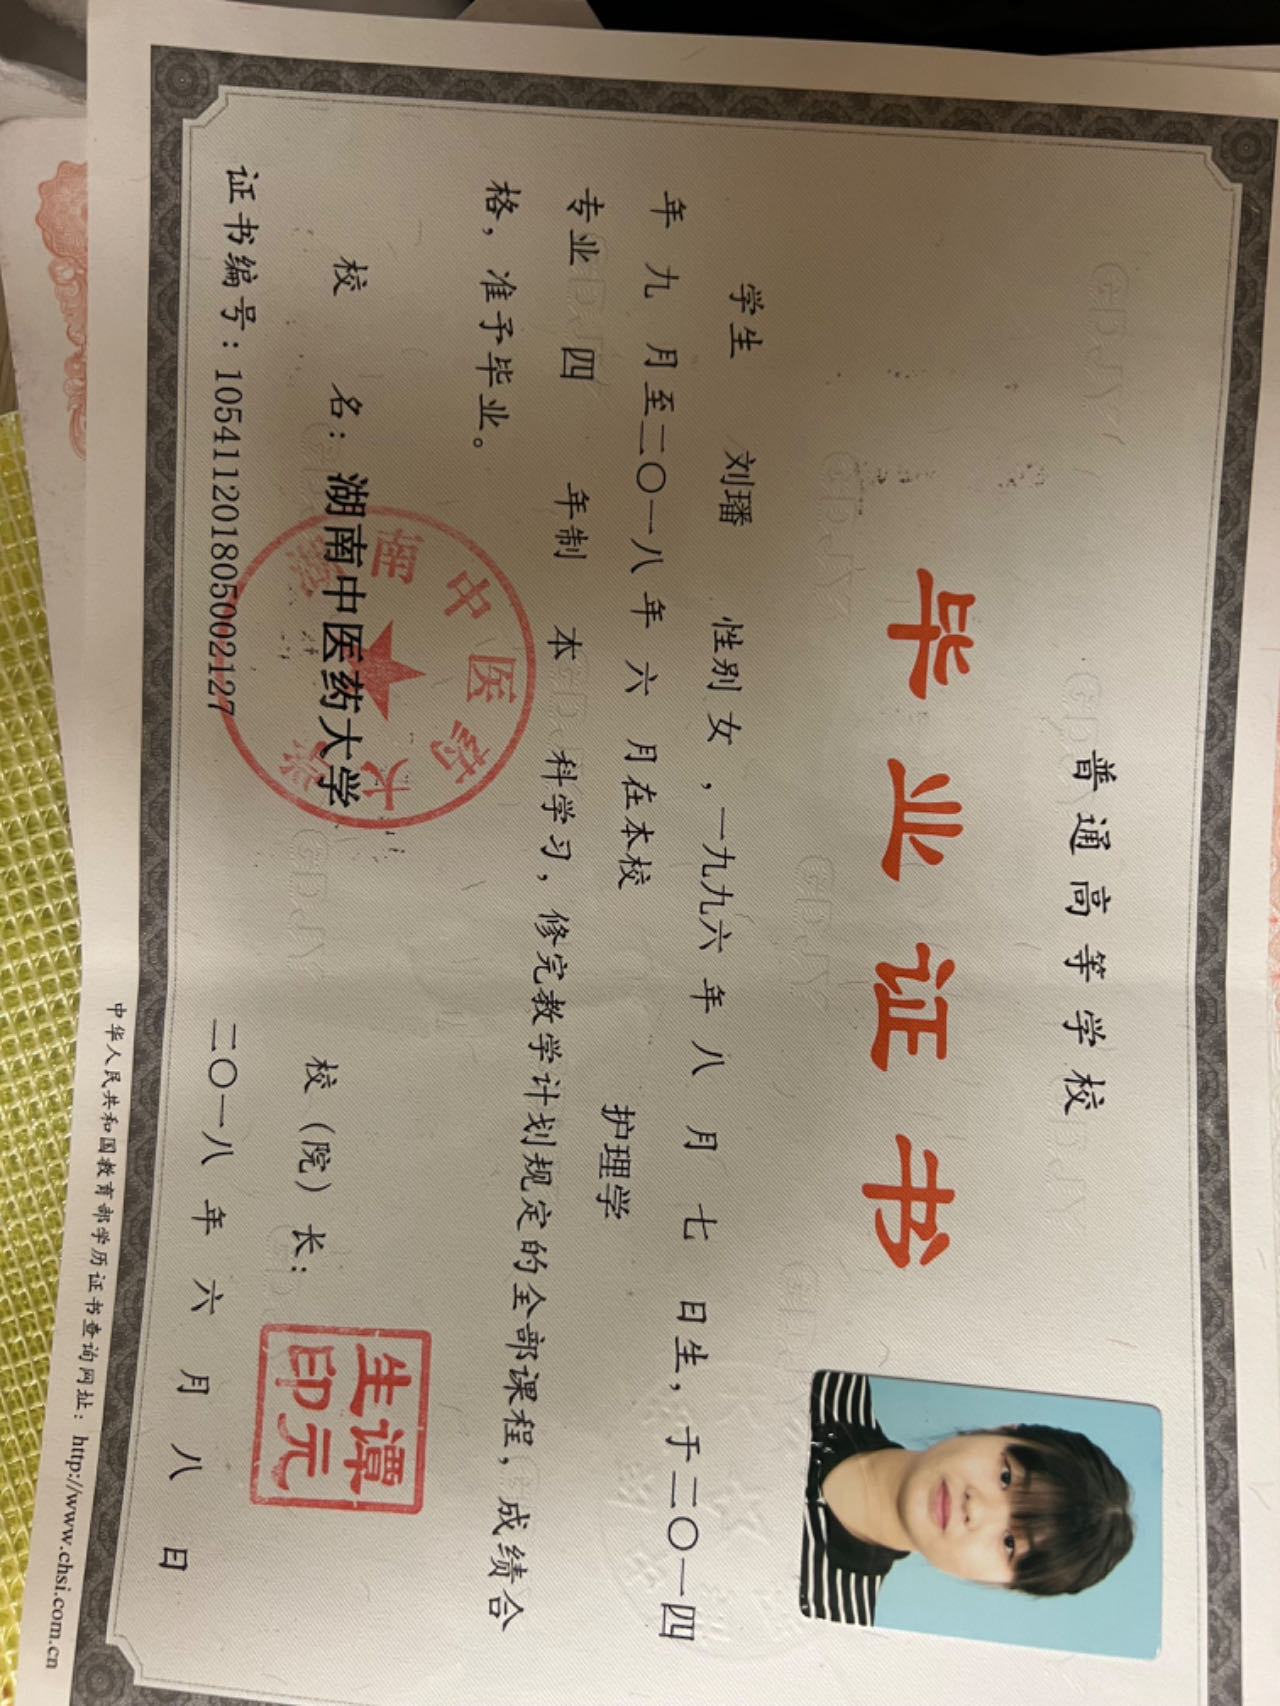 普通高等学校
毕业证书
学生 刘璠 性别 女 ，一九九六 年 八 月 七 日生，于二〇一四
年 九 月至二〇一八年 六 月在本校 护理学
专业 四 年制 本 科学习，修完教学计划规定的全部课程，成绩合
格，准予毕业。
校 名：湖南中医药大学 校（院）长：
谭元
生印
湖南中医药大学
证书编号：105411201805002127 二〇一八 年 六 月 八 日
中华人民共和国教育部学历证书查询网址：http://www.chsi.com.cn